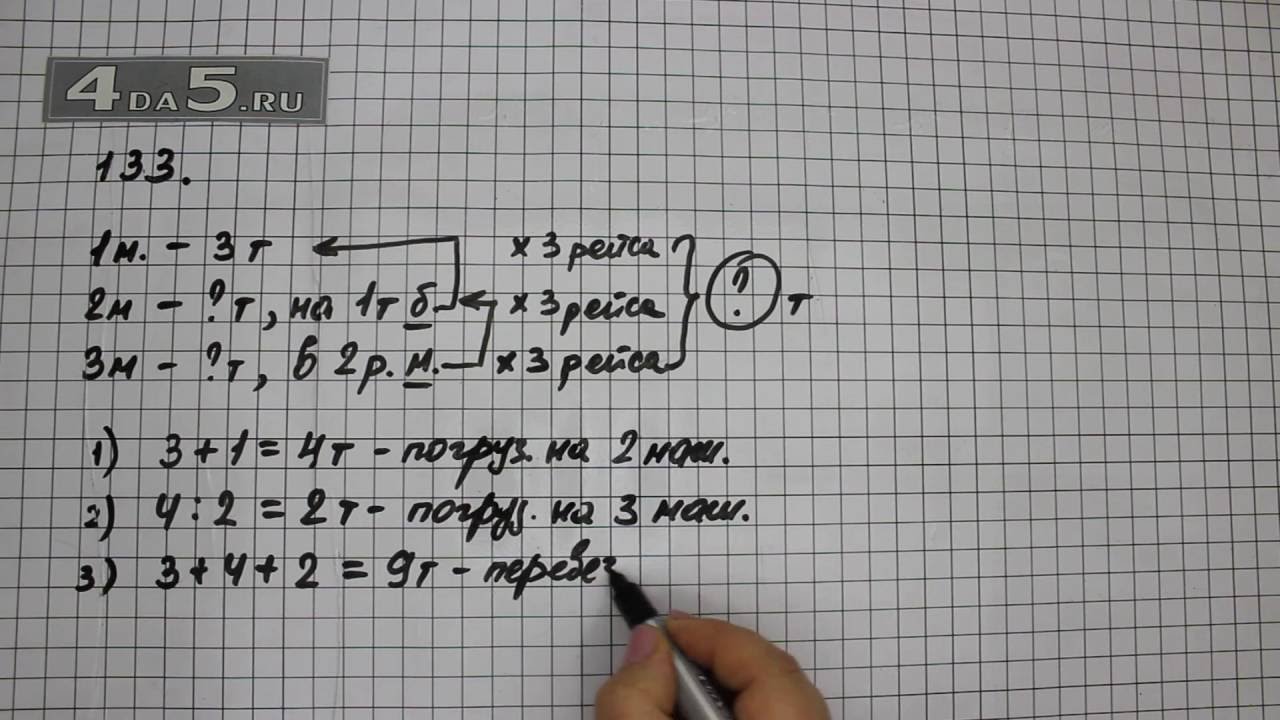 4DA5.RU
133.
1м. - 3т х 3 рейса
2м - ?т, на 1т б. х 3 рейса ? т
3м - ?т, в 2р. м. х 3 рейса
1) 3 + 1 = 4т - погруз. на 2 маш.
2) 4 : 2 = 2т - погруз. на 3 маш.
3) 3 + 4 + 2 = 9т - перевез